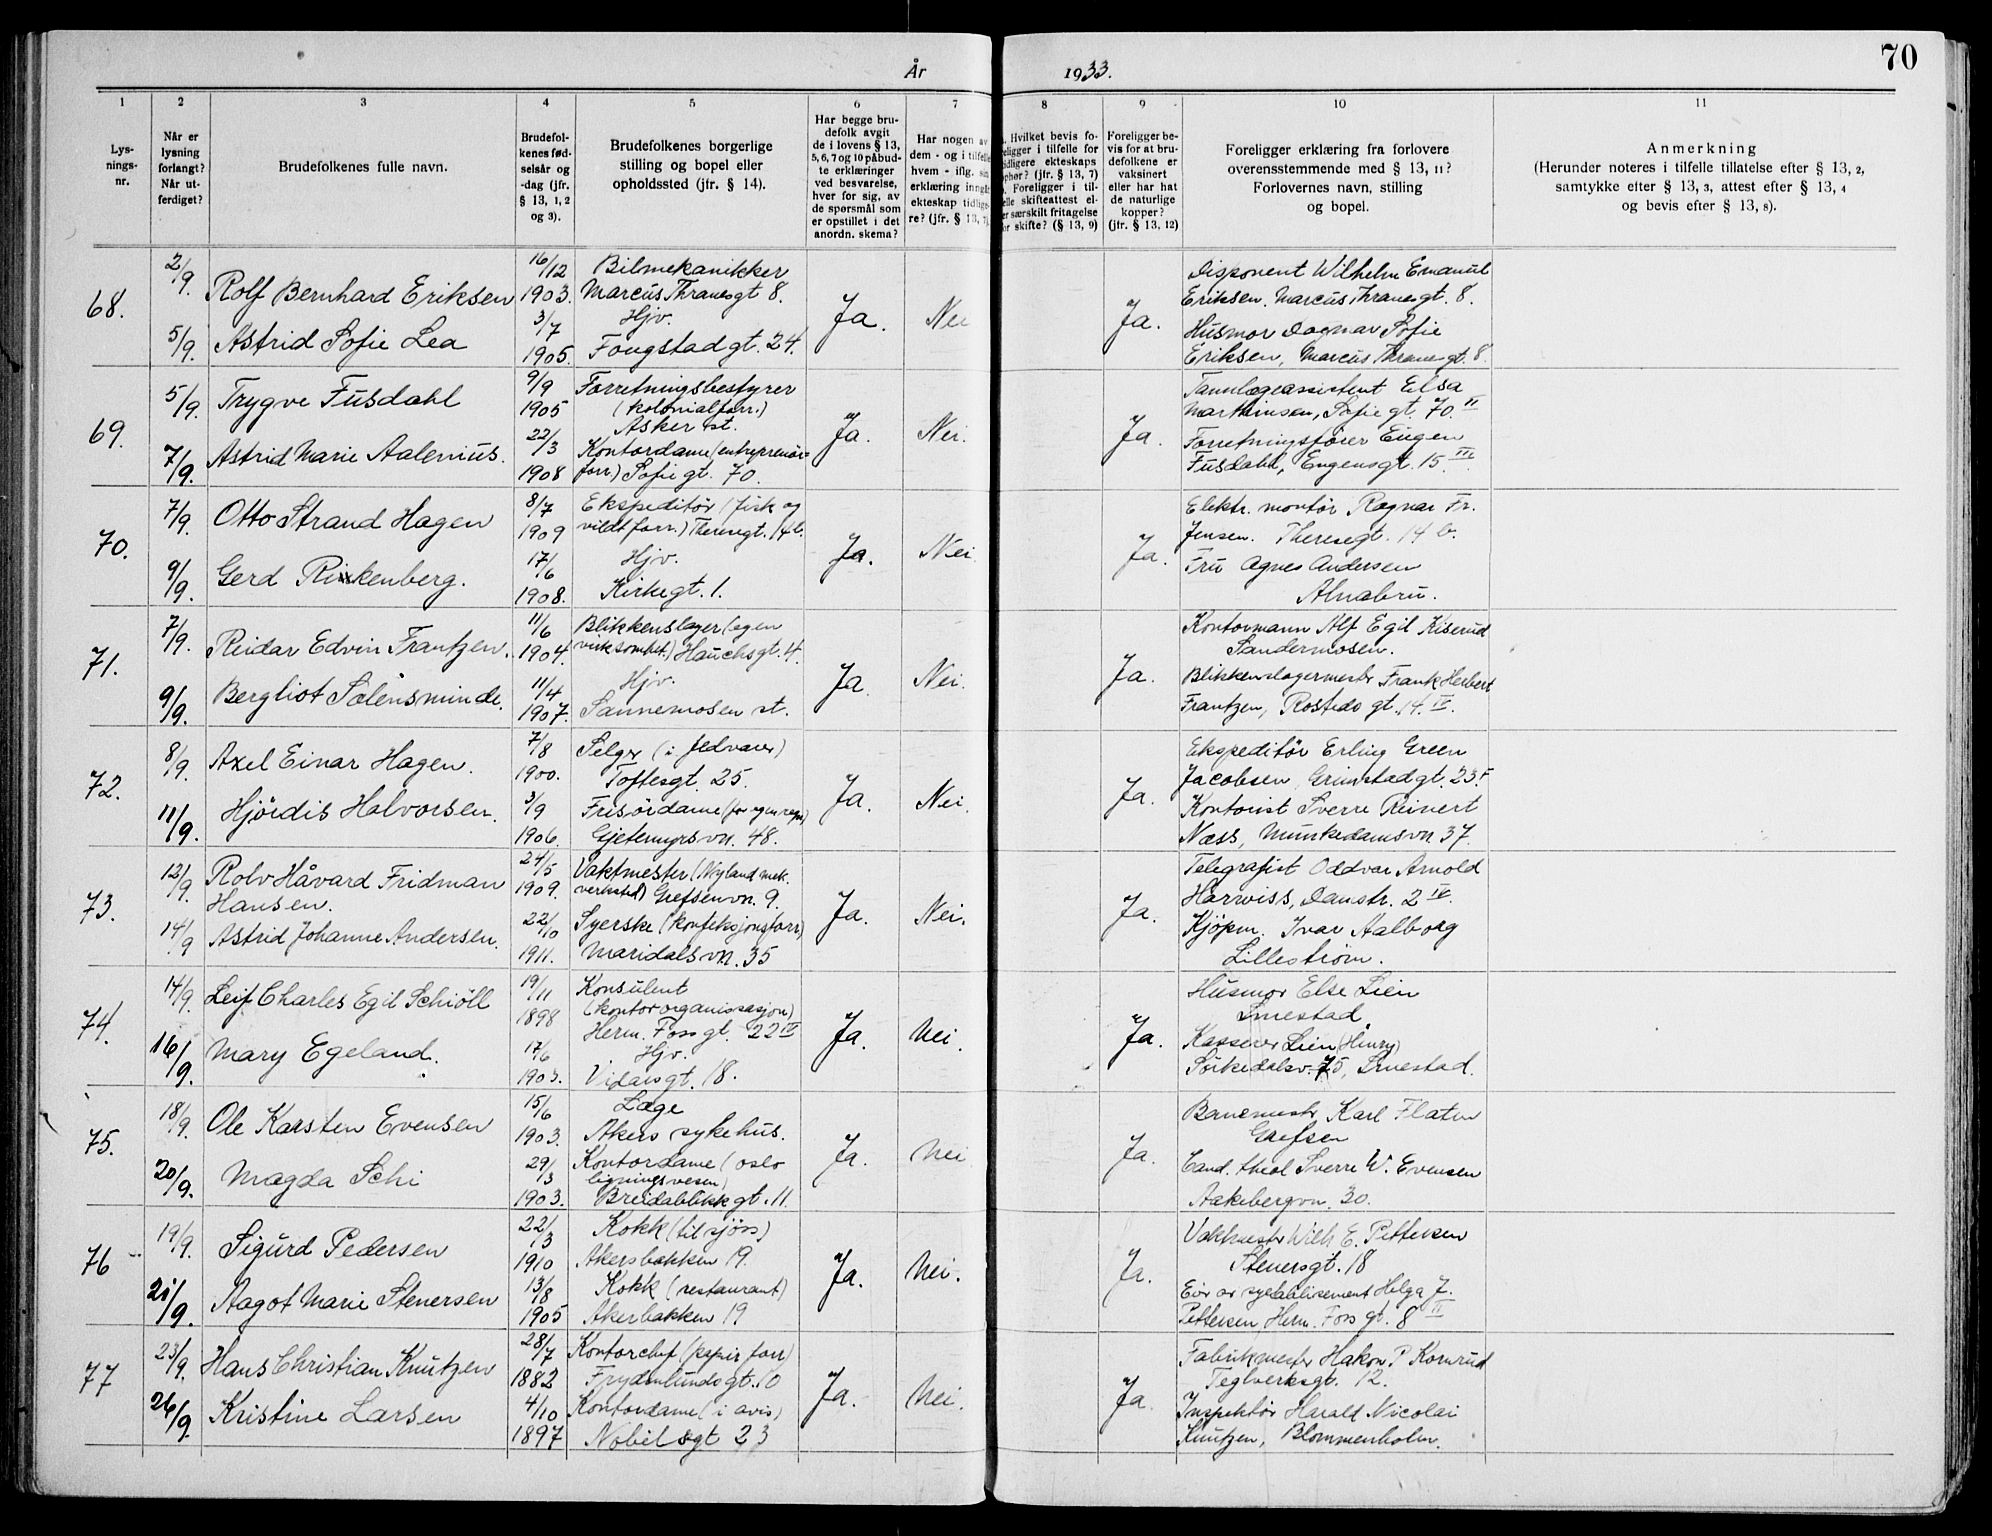 70
År 1933.
1 2 3 4 5 6 7 8 9 10 11
Lys-
nings-
nr.
Når er
lysning
forlangt?
Når ut-
ferdiget?
Brudefolkenes fulle navn.
Brudefol-
kenes fød-
selsår og
-dag (jfr.
§ 13, 1, 2
og 3).
Brudefolkenes borgerlige
stilling og bopel eller
opholdssted (jfr. § 14).
Har begge bru-
defolk avgit
de i lovens § 13,
5, 6, 7 og 10 påbud-
te erklæringer
ved besvarelse,
hver for sig, av
de spørsmål som
er opstillet i det
anordn. skema?
Har nogen av
dem - og i tilfelle
hvem - iflg. sin
erklæring inngått
ekteskap tidlige-
re? (jfr. § 13, 7).
Hvilket bevis fo-
religger i tilfelle for
tidligere ekteskaps
ophør? (jfr. § 13, 7)
Foreligger i til-
felle skifteattest el-
ler særskilt fritagelse
for skifte? (§ 13, 9)
Foreligger be-
vis for at bru-
defolkene er
vaksinert
eller har hat
de naturlige
kopper?
(jfr. § 13, 12)
Foreligger erklæring fra forlovere
overensstemmende med § 13, 11?
Forlovernes navn, stilling
og bopel.
Anmerkning
(Herunder noteres i tilfelle tillatelse efter § 13, 2,
samtykke efter § 13, 3, attest efter § 13, 4
og bevis efter § 13, 8).
68.
2/9.
5/9.
Rolf Bernhard Eriksen
Astrid Sofie Lea
16/12
1903.
3/7
1905.
Bilmekanikker
Marcus Thranesgt 8.
Hjv.
Fougstadgt. 24.
Ja.
Nei
Ja.
Disponent Wilhelm Emanuel
Eriksen. Marcus Thranesgt. 8.
Husmor Dagmar Sofie
Eriksen, Marcus Thranesgt. 8.
69.
5/9.
7/9.
Trygve Fusdahl
Astrid Marie Aalenius.
9/9
1905
22/3
1908
Forretningsbestyrer
(kolonialforr.)
Asker st.
Kontordame (entreprenør-
forr.) Sofiegt. 70.
Ja.
Nei.
Ja.
Tannlægeassistent Elsa
Marthinsen, Sofiegt. 70. II
Forretningsfører Eugen
Fusdahl, Eugensgt. 15. III
70.
7/9.
9/9.
Otto Strand Hagen
Gerd Rinkenberg.
8/7
1909
17/6
1908.
Ekspeditør (fisk og
vildtforr.) Theresegt. 14b.
Hjv.
Kirkegt. 1.
Ja.
Nei
Ja.
Elektr. montør Ragnar Fr.
Jensen. Theresegt. 14 b.
Fru Agnes Andersen
Alnabru.
71.
7/9.
9/9.
Reidar Edvin Frantzen.
Bergliot Solensminde.
11/6
1904.
11/4
1907.
Blikkenslager (egen
virksomhet.) Hauchsgt. 4.
Hjv.
Sannemosen st.
Ja.
Nei.
Ja.
Kontormann Alf Egil Kiserud
Sandermosen.
Blikkenslagermester Frank Herbert
Frantzen, Rostedsgt. 14. IV.
72.
8/9.
11/9.
Axel Einar Hagen.
Hjördis Halvorsen.
7/8
1900.
3/9
1906.
Selger (i fedvarer)
Toftesgt. 25.
Frisördame (for egen regn)
Gjetemyrsvn. 48.
Ja.
Nei.
Ja.
Ekspeditör Erling Green
Jacobsen, Grimstadgt. 23 I
Kontorist Sverre Reinert
Næss, Munkedamsvn 37.
73.
12/9.
14/9
Rolv Håvard Fridman
Hansen.
Astrid Johanne Andersen.
24/5
1909.
22/10
1911.
Vaktmester (Nyland mek.
verksted) Grefsenvn. 9.
Syerske (konfeksjonsforr)
Maridalsvn. 35
Ja.
Nei.
Ja.
Telegrafist Oddvar Arnold
Harwiss, Damstr. 2 IV.
Kjöpm. Ivar Aalborg
Lilleström.
74.
14/9.
16/9.
Leif Charles Egil Schiöll
Mary Egeland.
19/11
1898
17/6
1903.
Konsulent
(kontororganisasjon)
Herm. Fossgt. 22 IV
Hjv.
Vidarsgt. 18.
Ja.
Nei.
Ja.
Husmor Else Lien
Smestad
Kasserer Lien (Henry)
Sörkedalsv. 75, Smestad.
75.
18/9.
20/9.
Ole Karsten Evensen
Magda Schi
15/6
1903.
29/3
1903.
Læge
Akers sykehus.
Kontordame (Oslo
ligningsvesen)
Breidablikkgt. 11.
Ja.
Nei
Ja.
Banemester Karl Flaten
Grefsen
Cand. theol Sverre W. Evensen
Aakebergvn. 30.
76
19/9.
21/9.
Sigurd Pedersen
Aagot Marie Stenersen
22/3
1910
13/8
1905
Kokk (til sjøss)
Akersbakken 19.
Kokk (restaurant)
Akerbakken 19
Ja.
Nei.
Ja.
Vaktmester Wilh E. Pettersen
Stenersgt. 18
Eier av syetablisement Helga J.
Pettersen, Herm. Foss gt. 8 II
77
23/9.
26/9.
Hans Christian Knutzen
Kristine Larsen
28/7
1882
4/10
1897
Kontorchef (papir forr)
Frydenlundsgt. 10
Kontordame (i avis)
Nobelsgt 23
Ja.
Nei.
Ja.
Fabrikmester Hakon P Kornrud
Teglverksgt. 12.
Inspektör Harald Nicolai
Knutzen, Blommenholm.